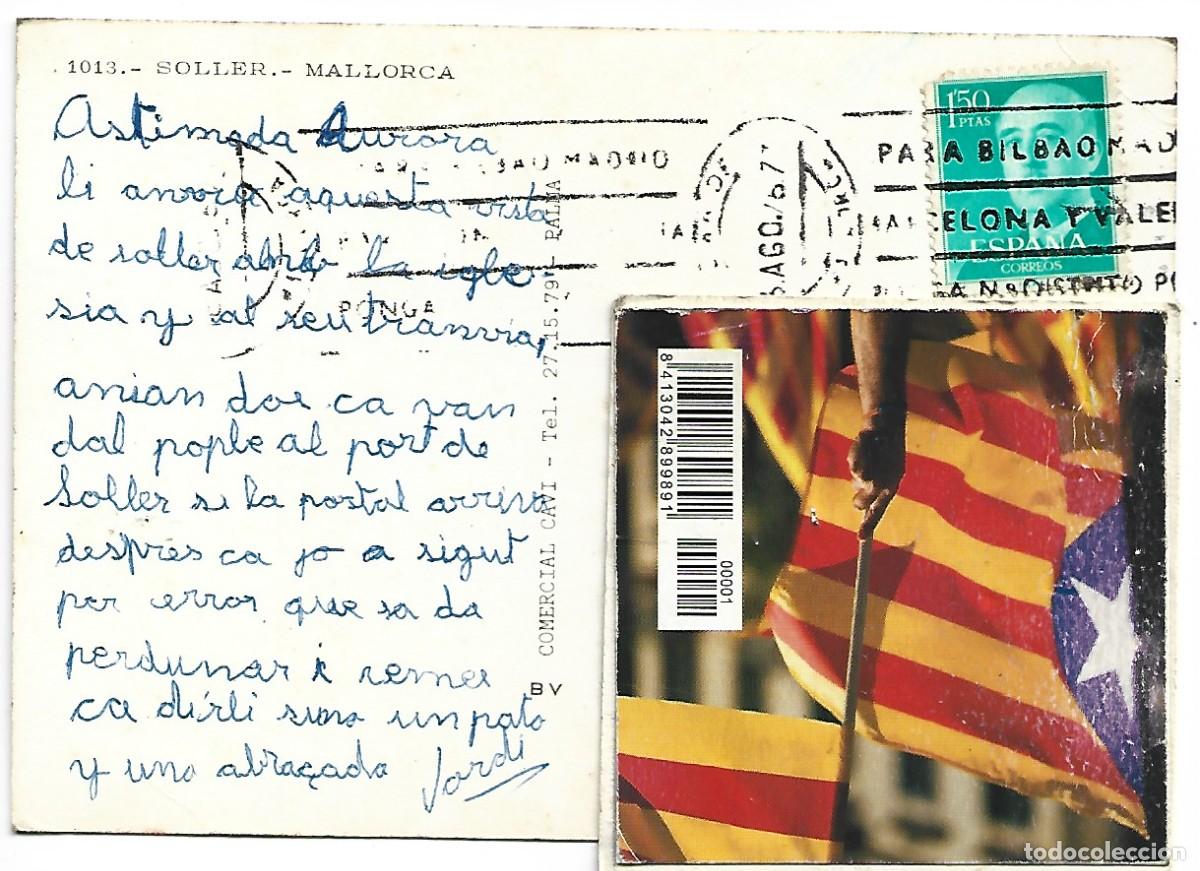 1013.- SOLLER.- MALLORCA
Astimada Aurora
li anvio aquesta vista
de soller amb la igle
sia y al seu tranvia,
anian dos ca van
dal pople al port de
Soller si la postal arriva
despres ca jo a sigut
per error que sa da
perdunar i remes
ca dirli sino un pato
y una abraçada Jordi
COMERCIAL CAVI - Tel. 27.15.79 - PALMA
BV
1'50
PTAS
ESPAÑA
CORREOS
PARA BILBAO MAD
CELONA Y VALE
DISTRITO P
AGO.67
MADRID
PONGA
8 413042 899891
00001
todocoleccion